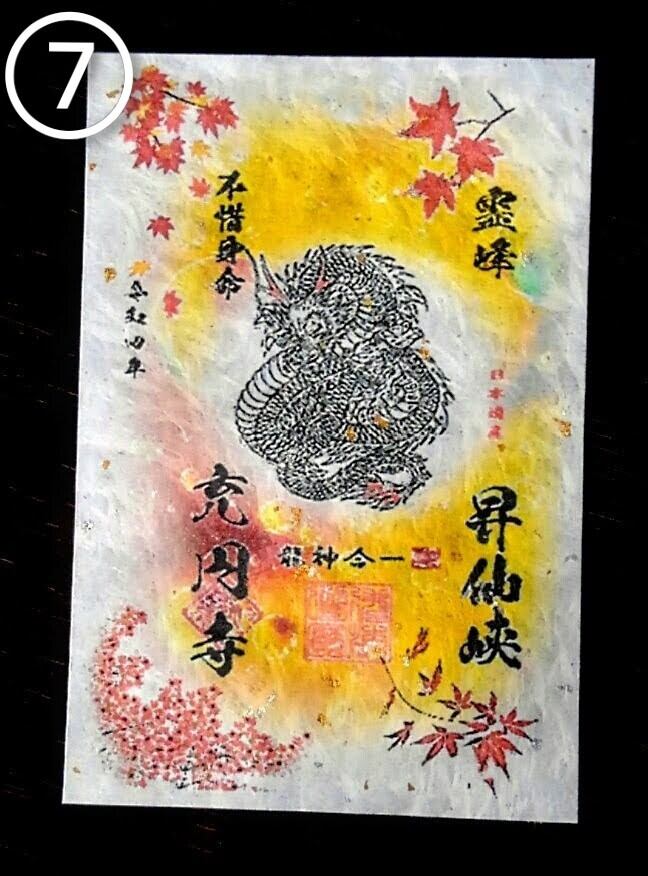 ⑦
霊峰
昇仙峡
日本遺産
不惜身命
令和四年
充円寺
龍神合一